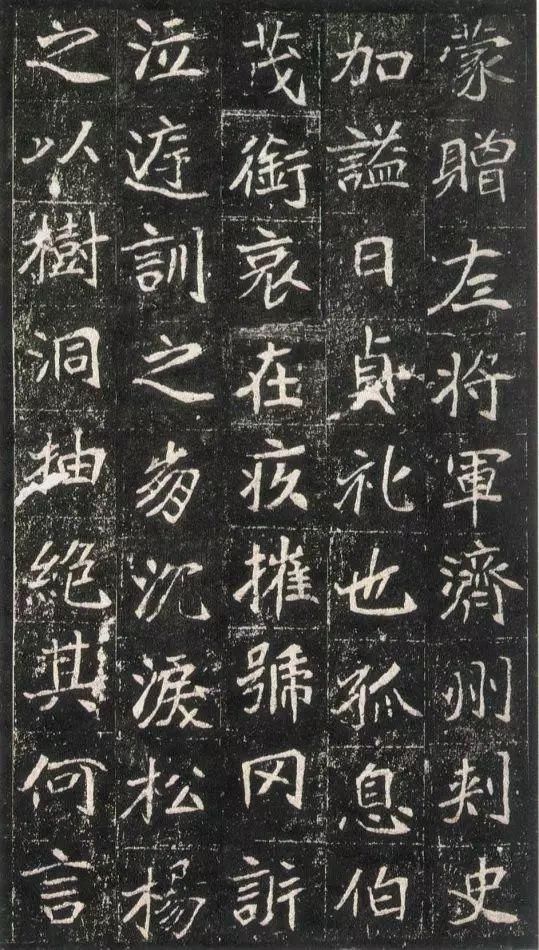 蒙贈左将軍濟州刾史
加謚曰貞礼也孤息伯
茂銜哀在疚摧號罔訴
泣庭訓之崩沉淚松楊
之以樹洞抽絕其何言